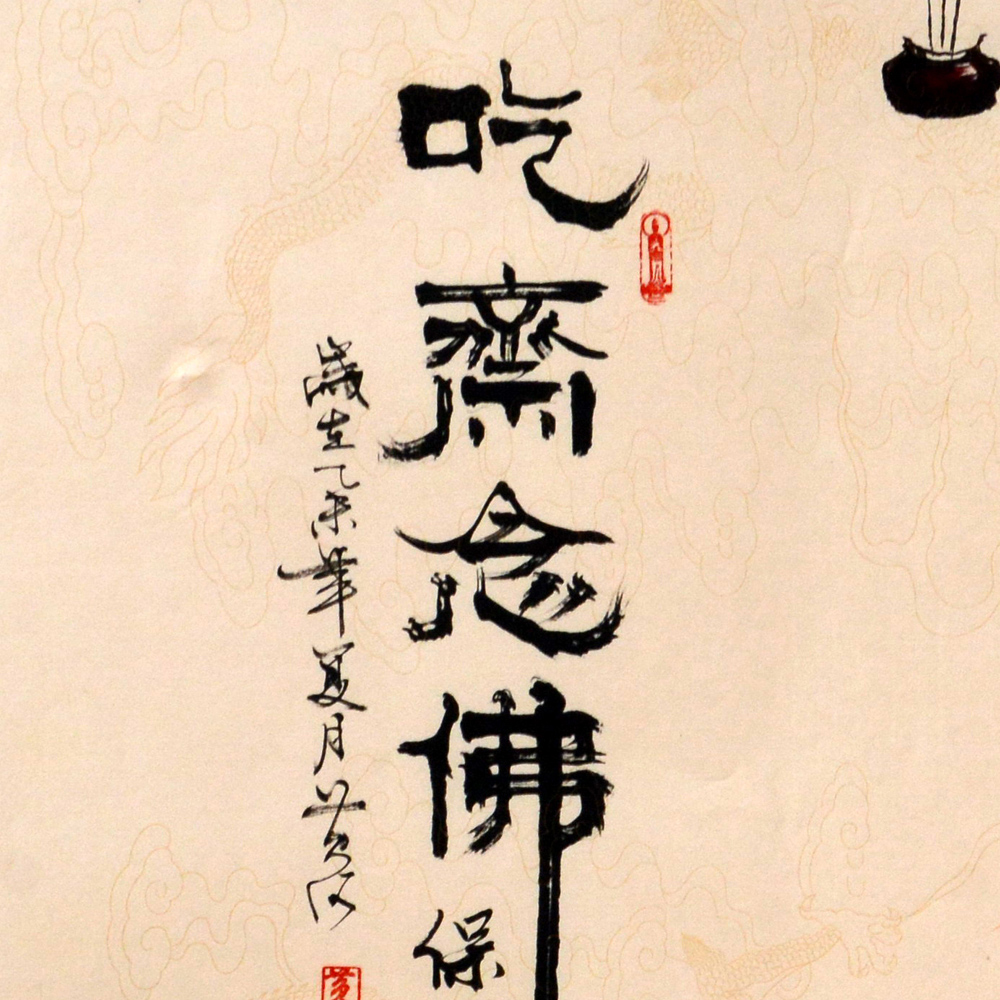 吃齋念佛保
歲在乙未年夏月黄河